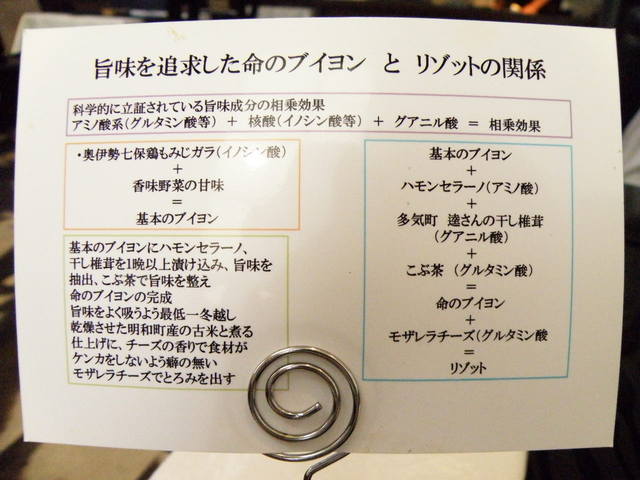 旨味を追求した命のブイヨン と リゾットの関係
科学的に立証されている旨味成分の相乗効果
アミノ酸系(グルタミン酸等) + 核酸(イノシン酸等) + グアニル酸 = 相乗効果
・奥伊勢七保鶏もみじガラ(イノシン酸)
+
香味野菜の甘味
=
基本のブイヨン
基本のブイヨンにハモンセラーノ、
干し椎茸を1晩以上漬け込み、旨味を
抽出、こぶ茶で旨味を整え
命のブイヨンの完成
旨味をよく吸うよう最低一冬越し
乾燥させた明和町産の古米と煮る
仕上げに、チーズの香りで食材が
ケンカをしないよう癖の無い
モザレラチーズでとろみを出す
基本のブイヨン
+
ハモンセラーノ(アミノ酸)
+
多気町 逵さんの干し椎茸
(グアニル酸)
+
こぶ茶 (グルタミン酸)
=
命のブイヨン
+
モザレラチーズ(グルタミン酸
=
リゾット